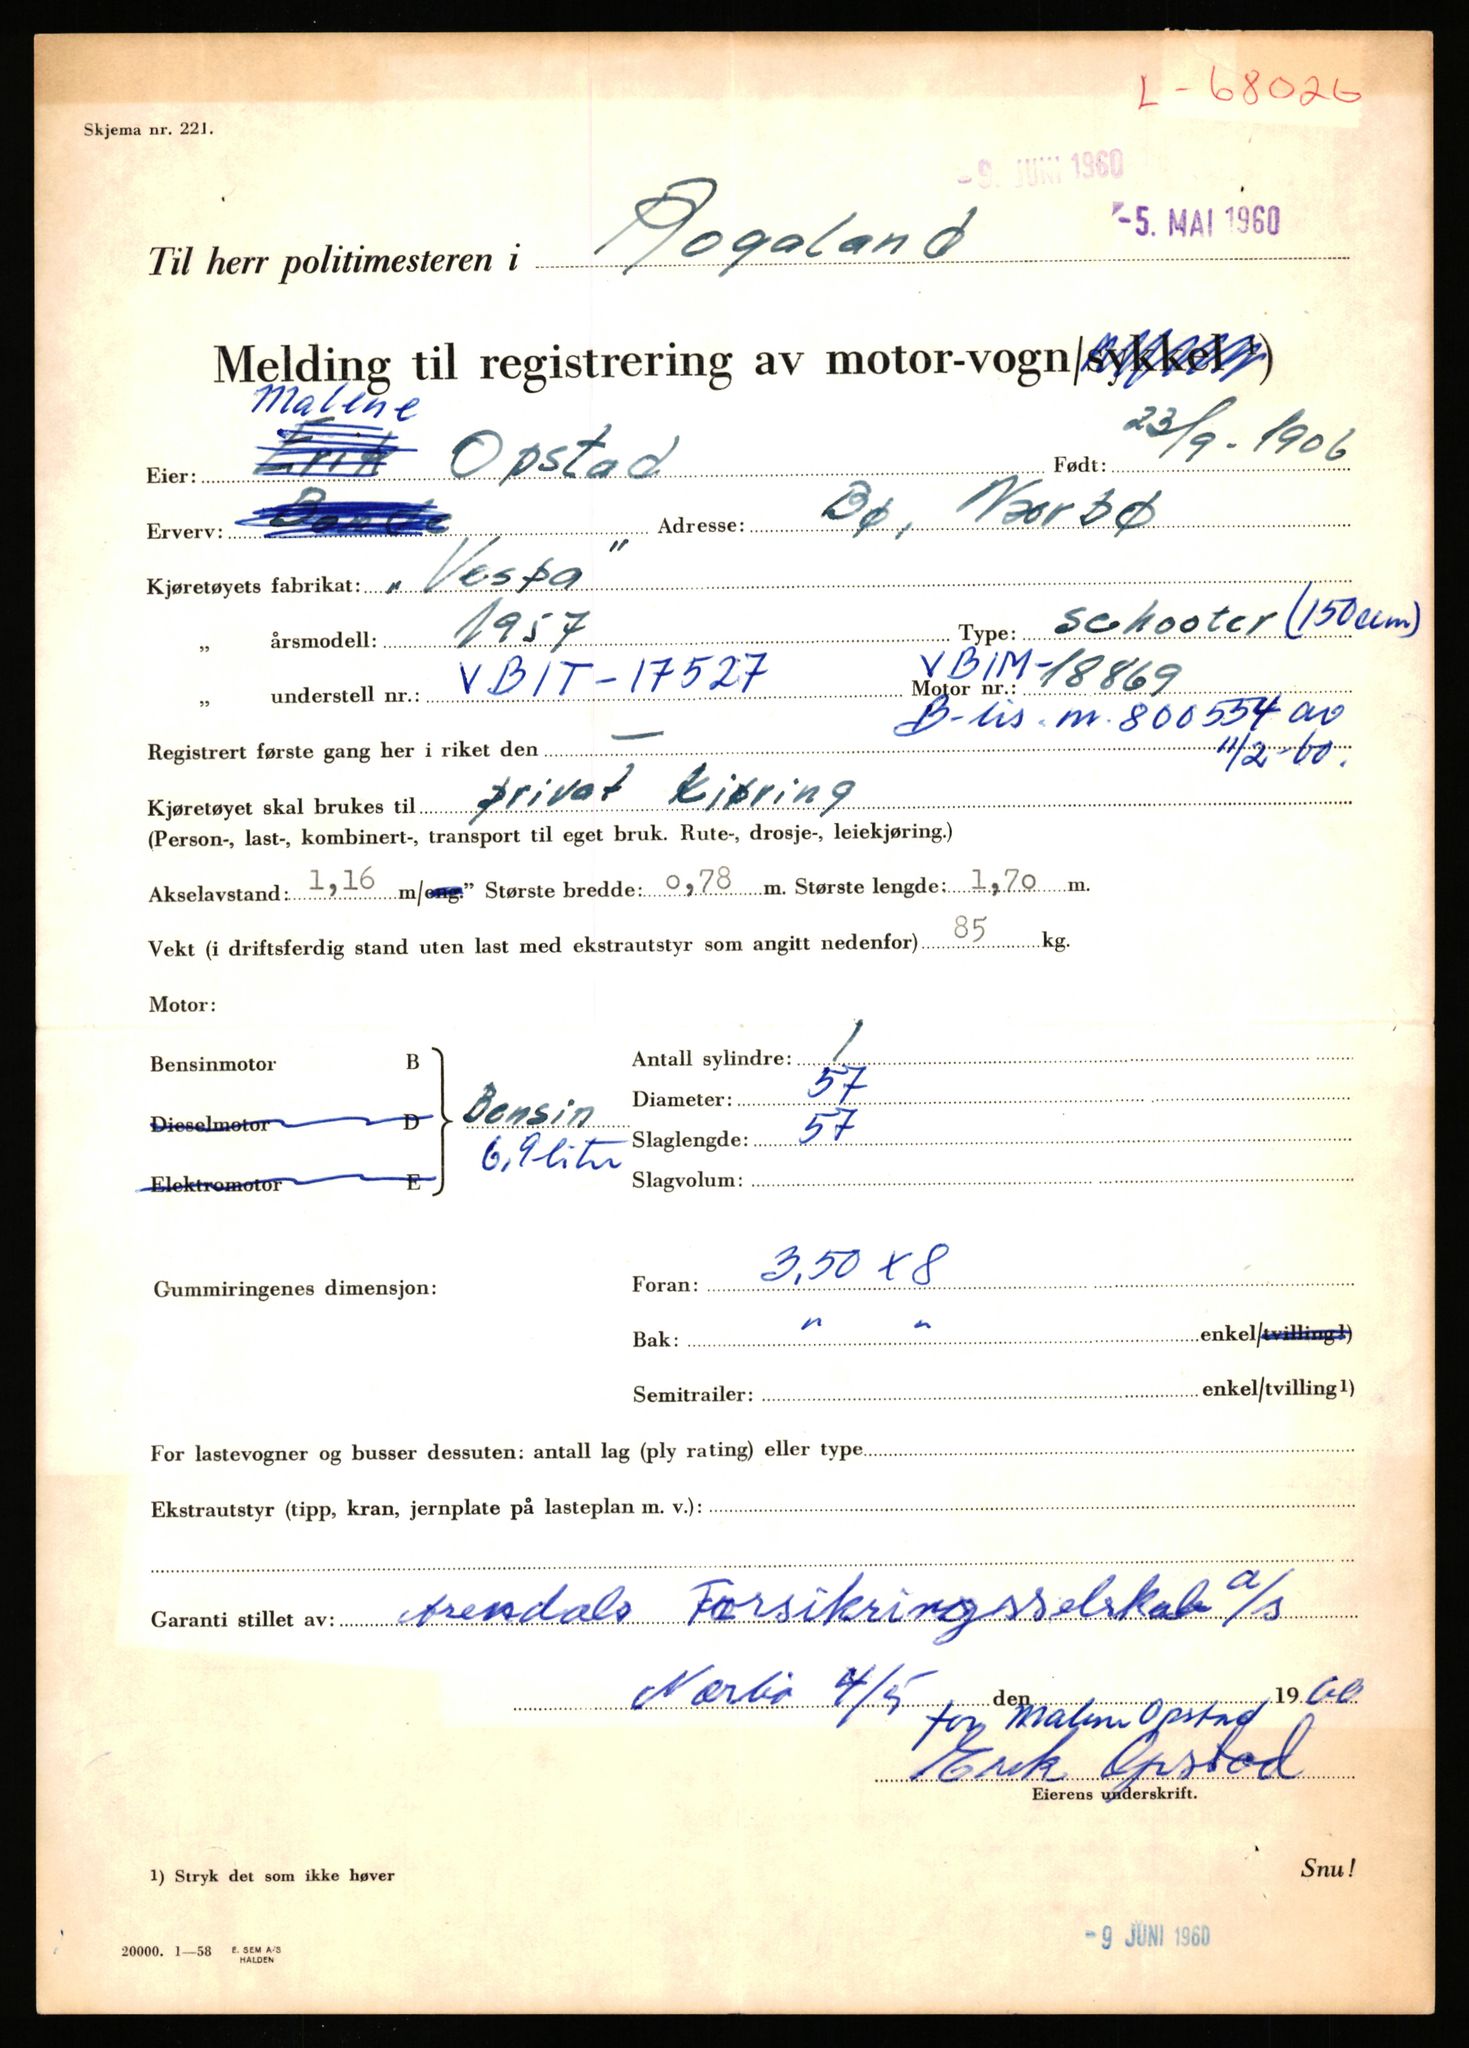 L - 68026
Skjema nr. 221.
- 9. JUNI 1960
- 5. MAI 1960
Til herr politimesteren i Rogaland
Melding til registrering av motor-vogn/sykkel ¹)
Malene
Eier: Erik Opstad Født: 23/9 - 1906
Erverv: Bonde Adresse: Bø, Nærbø
Kjøretøyets fabrikat: „ Vespa "
„ årsmodell: 1957 Type: Schooter (150 ccm)
„ understell nr.: VB1T - 17527 Motor nr.: VB1M - 18869
B-lis. nr. 800554 av
Registrert første gang her i riket den — 11/2 - 60.
Kjøretøyet skal brukes til privat kjøring
(Person-, last-, kombinert-, transport til eget bruk. Rute-, drosje-, leiekjøring.)
Akselavstand: 1,16 m/eng." Største bredde: 0,78 m. Største lengde: 1,70 m.
Vekt (i driftsferdig stand uten last med ekstrautstyr som angitt nedenfor) 85 kg.
Motor:
Bensinmotor B
Dieselmotor D
Elektromotor E
Bensin
6,9 liter
Antall sylindre: 1
Diameter: 57
Slaglengde: 57
Slagvolum:
Gummiringenes dimensjon: Foran: 3,50 x 8
Bak: " " enkel/tvilling1)
Semitrailer: enkel/tvilling1)
For lastevogner og busser dessuten: antall lag (ply rating) eller type
Ekstrautstyr (tipp, kran, jernplate på lasteplan m. v.):
Garanti stillet av: Arendals Forsikringsselskab a/s
Nærbø 4/5 den 19 60
for Malene Opstad
Erik Opstad
Eierens underskrift.
1) Stryk det som ikke høver
Snu!
20000. 1—58 E. SEM A/S
HALDEN
- 9 JUNI 1960